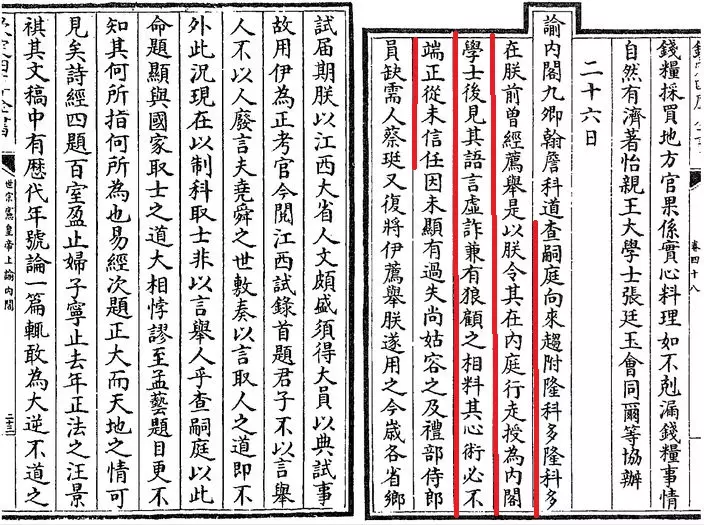 卷四十八
錢糧採買地方官果係實心料理如不剋漏錢糧事情
自然有濟著怡親王大學士張廷玉會同爾等協辦
二十六日
諭內閣九卿翰詹科道查嗣庭向來趨附隆科多隆科多
在朕前曾經薦舉是以朕令其在內庭行走授為內閣
學士後見其語言虛詐兼有狼顧之相料其心術必不
端正從未信任因未顯有過失尚姑容之及禮部侍郎
員缺需人蔡珽又復將伊薦舉朕遂用之今歲各省鄉
試届期朕以江西大省人文頗盛須得大員以典試事
故用伊為正考官今閱江西試錄首題君子不以言舉
人不以人廢言夫堯舜之世敷奏以言取人之道即不
外此況現在以制科取士非以言舉人乎查嗣庭以此
命題顯與國家取士之道大相悖謬至孟藝題目更不
知其何所指何所為也易經次題正大而天地之情可
見矣詩經四題百室盈止婦子寧止去年正法之汪景
祺其文稿中有歷代年號論一篇輒敢為大逆不道之
世宗憲皇帝上諭內閣